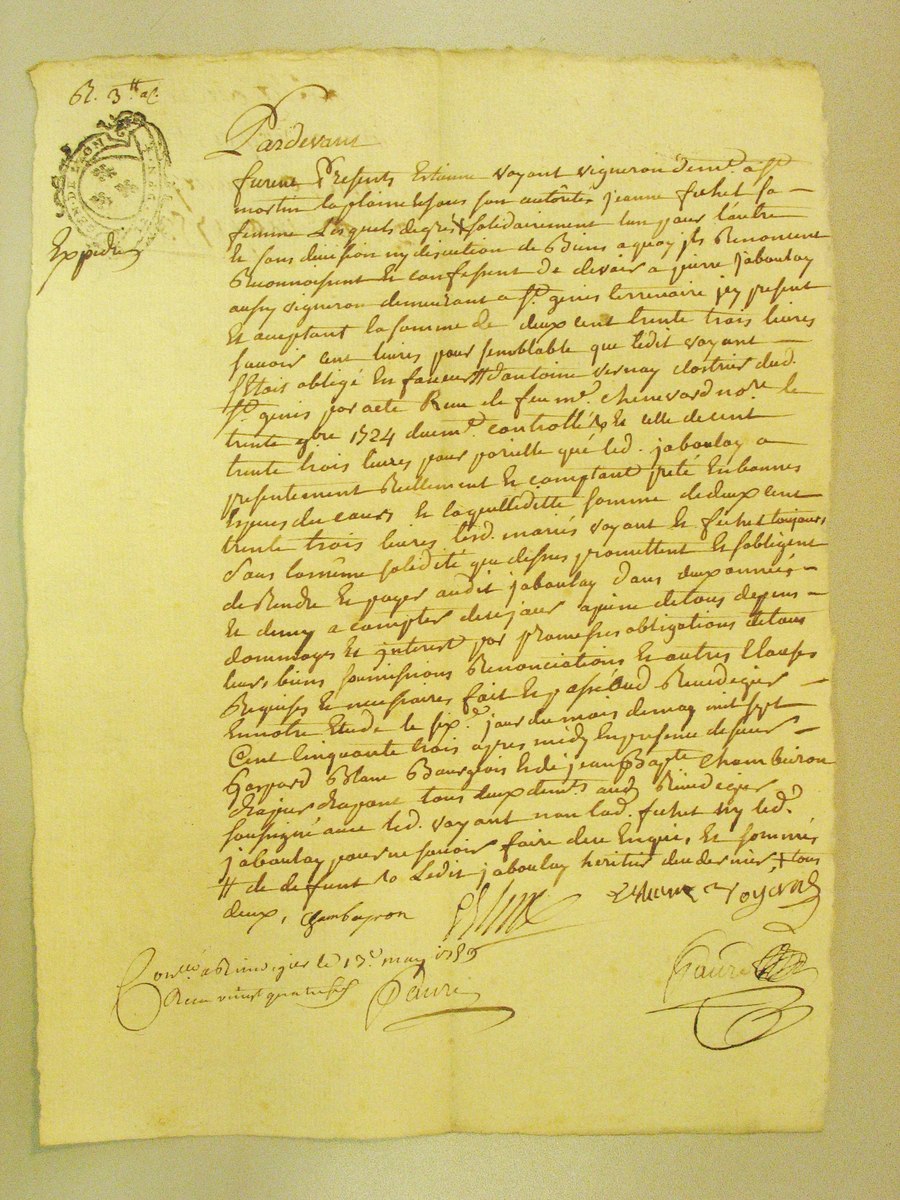 R. 3 ₶ 
Expedié
Pardevant
furent Presents Estienne voyant vigneron dem.t a S.t
martin la plaine et sous son autorite jeanne fichet sa –
femme Lesquels de gré & solidairement lun pour lautre
et sans division ny discution de Biens a quoy ils Renoncent
Reconnoissent et confessent de devoir a pierre jaboulay
aussy vigneron demeurant a S.t genis terrenoire icy present
et acceptant la somme de deux cent trente trois livres
savoir cent livres pour semblable que ledit voyant –
sétois obligé en faveur # dantoine vernay cloutrier dud.
S.t genis par acte Reçu de feu m.e chenevard no.re le
trente 9bre 1724 duem.t controllé & et celle de cent
trente trois livres pour pareille que led. jaboulay a
presentement Reellement et comptant preté en bonnes
Especes du cours et laquelleditte somme de deux cent
trente trois livres lesd. mariés voyant et fichet toujours
sous la même solidité que dessus promettent et sobligent
de Rendre et payer audit jaboulay dans deux années –
et demy a compter de ce jour a peine de tous depens –
dommages et interest par promesses obligations de tous
leurs biens soumissions Renonciations et autres Clauses
Requises et necessaires fait et passé aud Rivedegier –
en notre Etude le six.e jour du mois de may mil sept
Cent cinquante trois apres midy en presence de sieur –
Gaspard Blanc Bourgeois et de jean Bapte Chambeiron
tous deux dem.ts aud Rivedegier
soussigné avec led. voyant non lad. fichet ny led.
jaboulay pour ne savoir faire de ce Enquis et sommés
# de defunt Ledit jaboulay heritier de ce dernier & tous
deux, Chambeyron Blanc Estienne voyant
Con.llé a Rivedegier le 13.e may
Recu vingt quatre sols Faure Faure